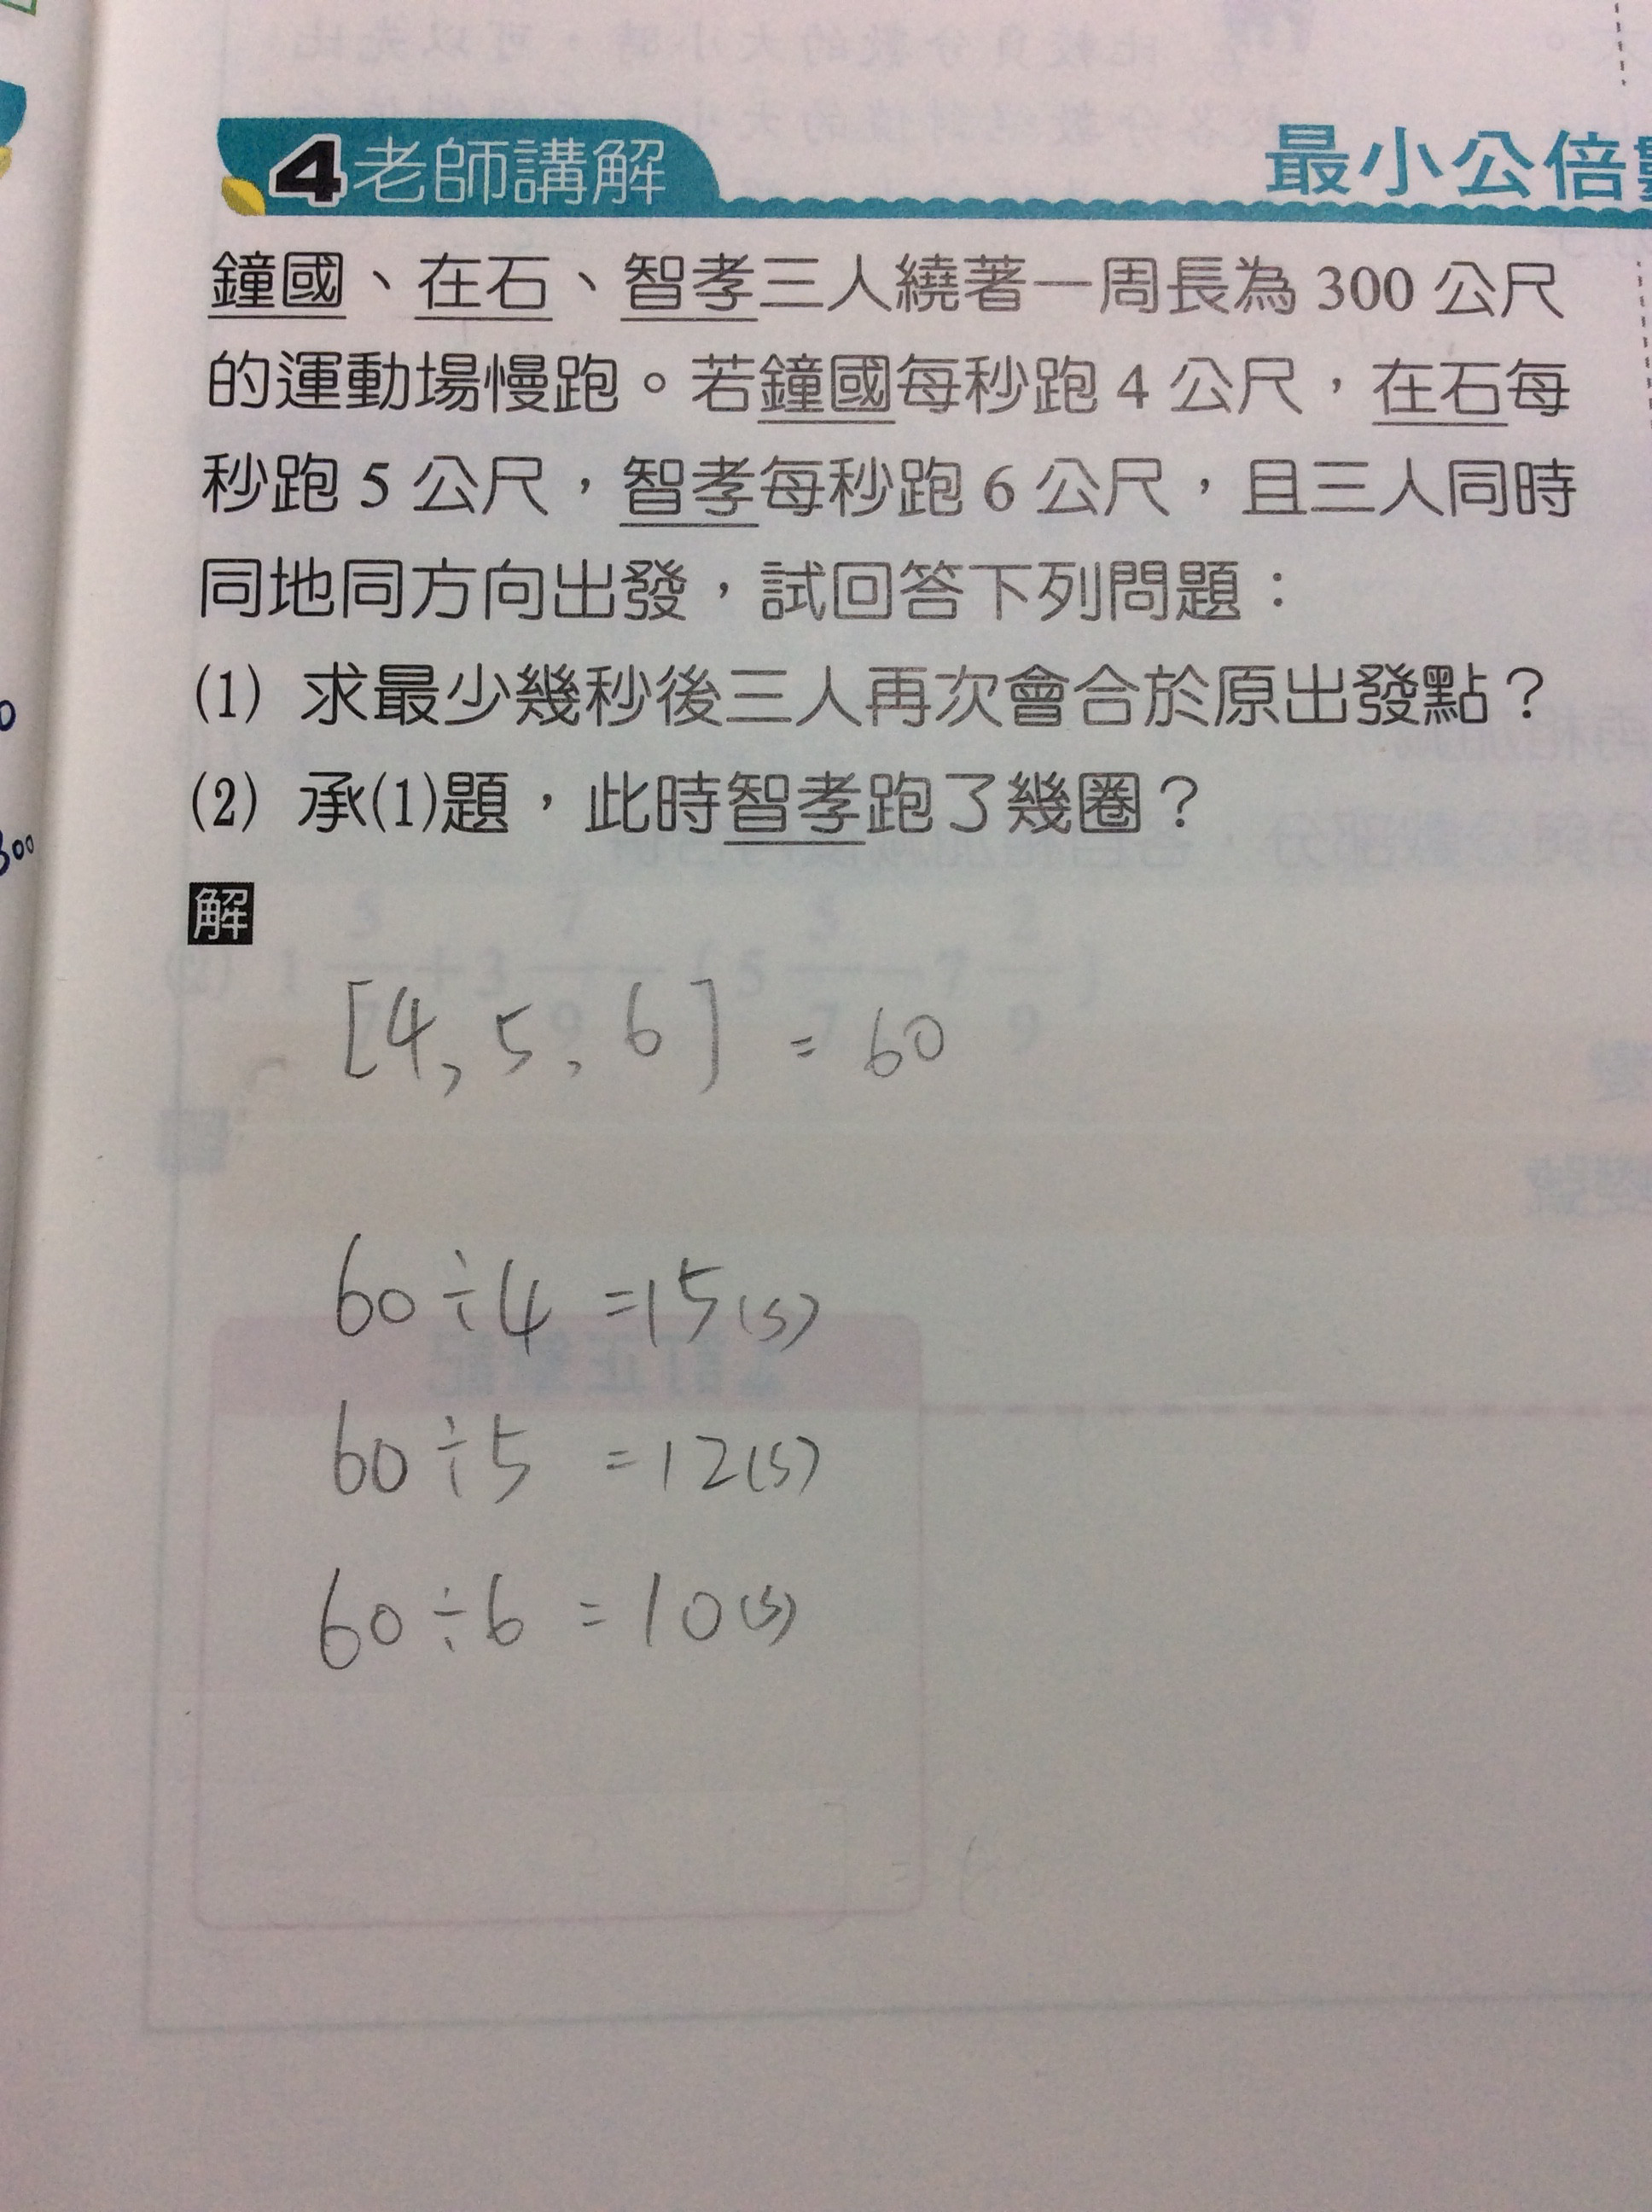 4老師講解
最小公倍
鐘國、在石、智孝三人繞著一周長為 300 公尺
的運動場慢跑。若鐘國每秒跑 4 公尺，在石每
秒跑 5 公尺，智孝每秒跑 6 公尺，且三人同時
同地同方向出發，試回答下列問題：
(1) 求最少幾秒後三人再次會合於原出發點？
(2) 承(1)題，此時智孝跑了幾圈？
解
[4, 5, 6] = 60
60÷4 =15(s)
60÷5 =12(s)
60÷6 =10(s)